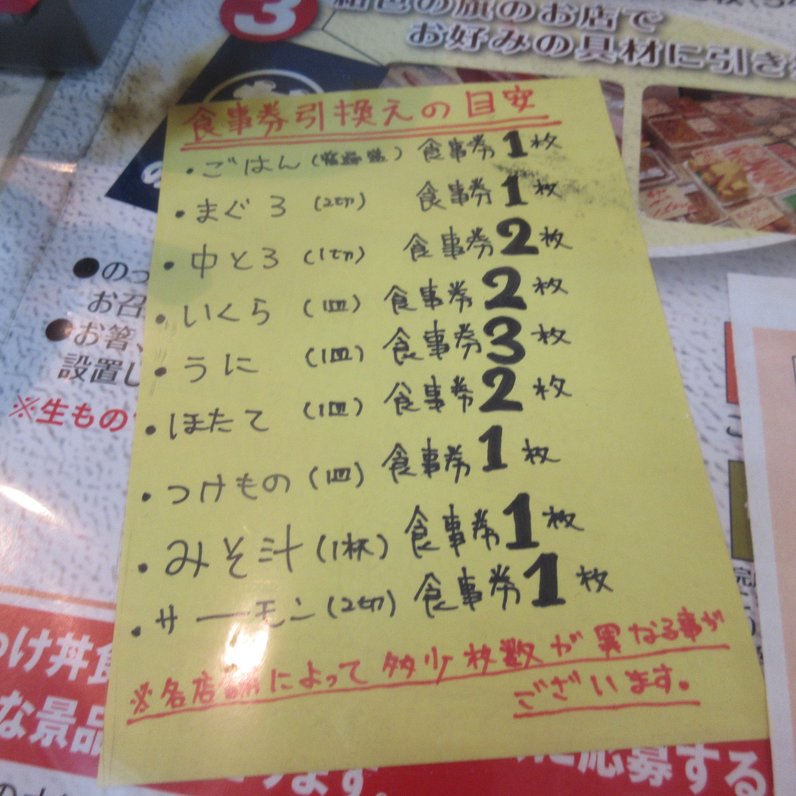 3
紺色の旗のお店で
お好みの具材に引き
食事券引換えの目安
・ごはん( ) 食事券1枚
・まぐろ(2切) 食事券1枚
・中とろ(1切) 食事券2枚
・いくら(1皿) 食事券2枚
・うに(1皿) 食事券3枚
・ほたて(1皿) 食事券2枚
・つけもの(1皿) 食事券1枚
・みそ汁(1杯) 食事券1枚
・サーモン(2切) 食事券1枚
※各店舗によって多少枚数が異なる事が
ございます。
●のっ
お召
●お箸、
設置し
※生もの
っけ丼食
な景品
応募する